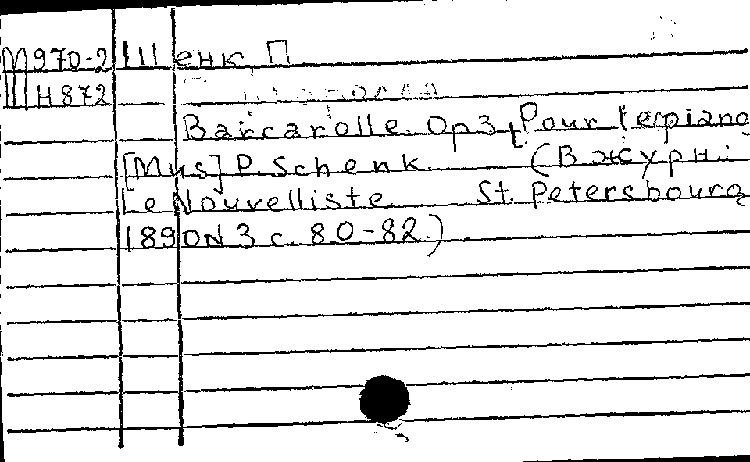 М970-2 Шенк П
Ш Н872
Barcarolle. Op 3 Pour le piano
[Mus] P. Schenk. (В журн:
Le Nouvelliste St. Petersbourg
1890 N 3 с. 80-82.)